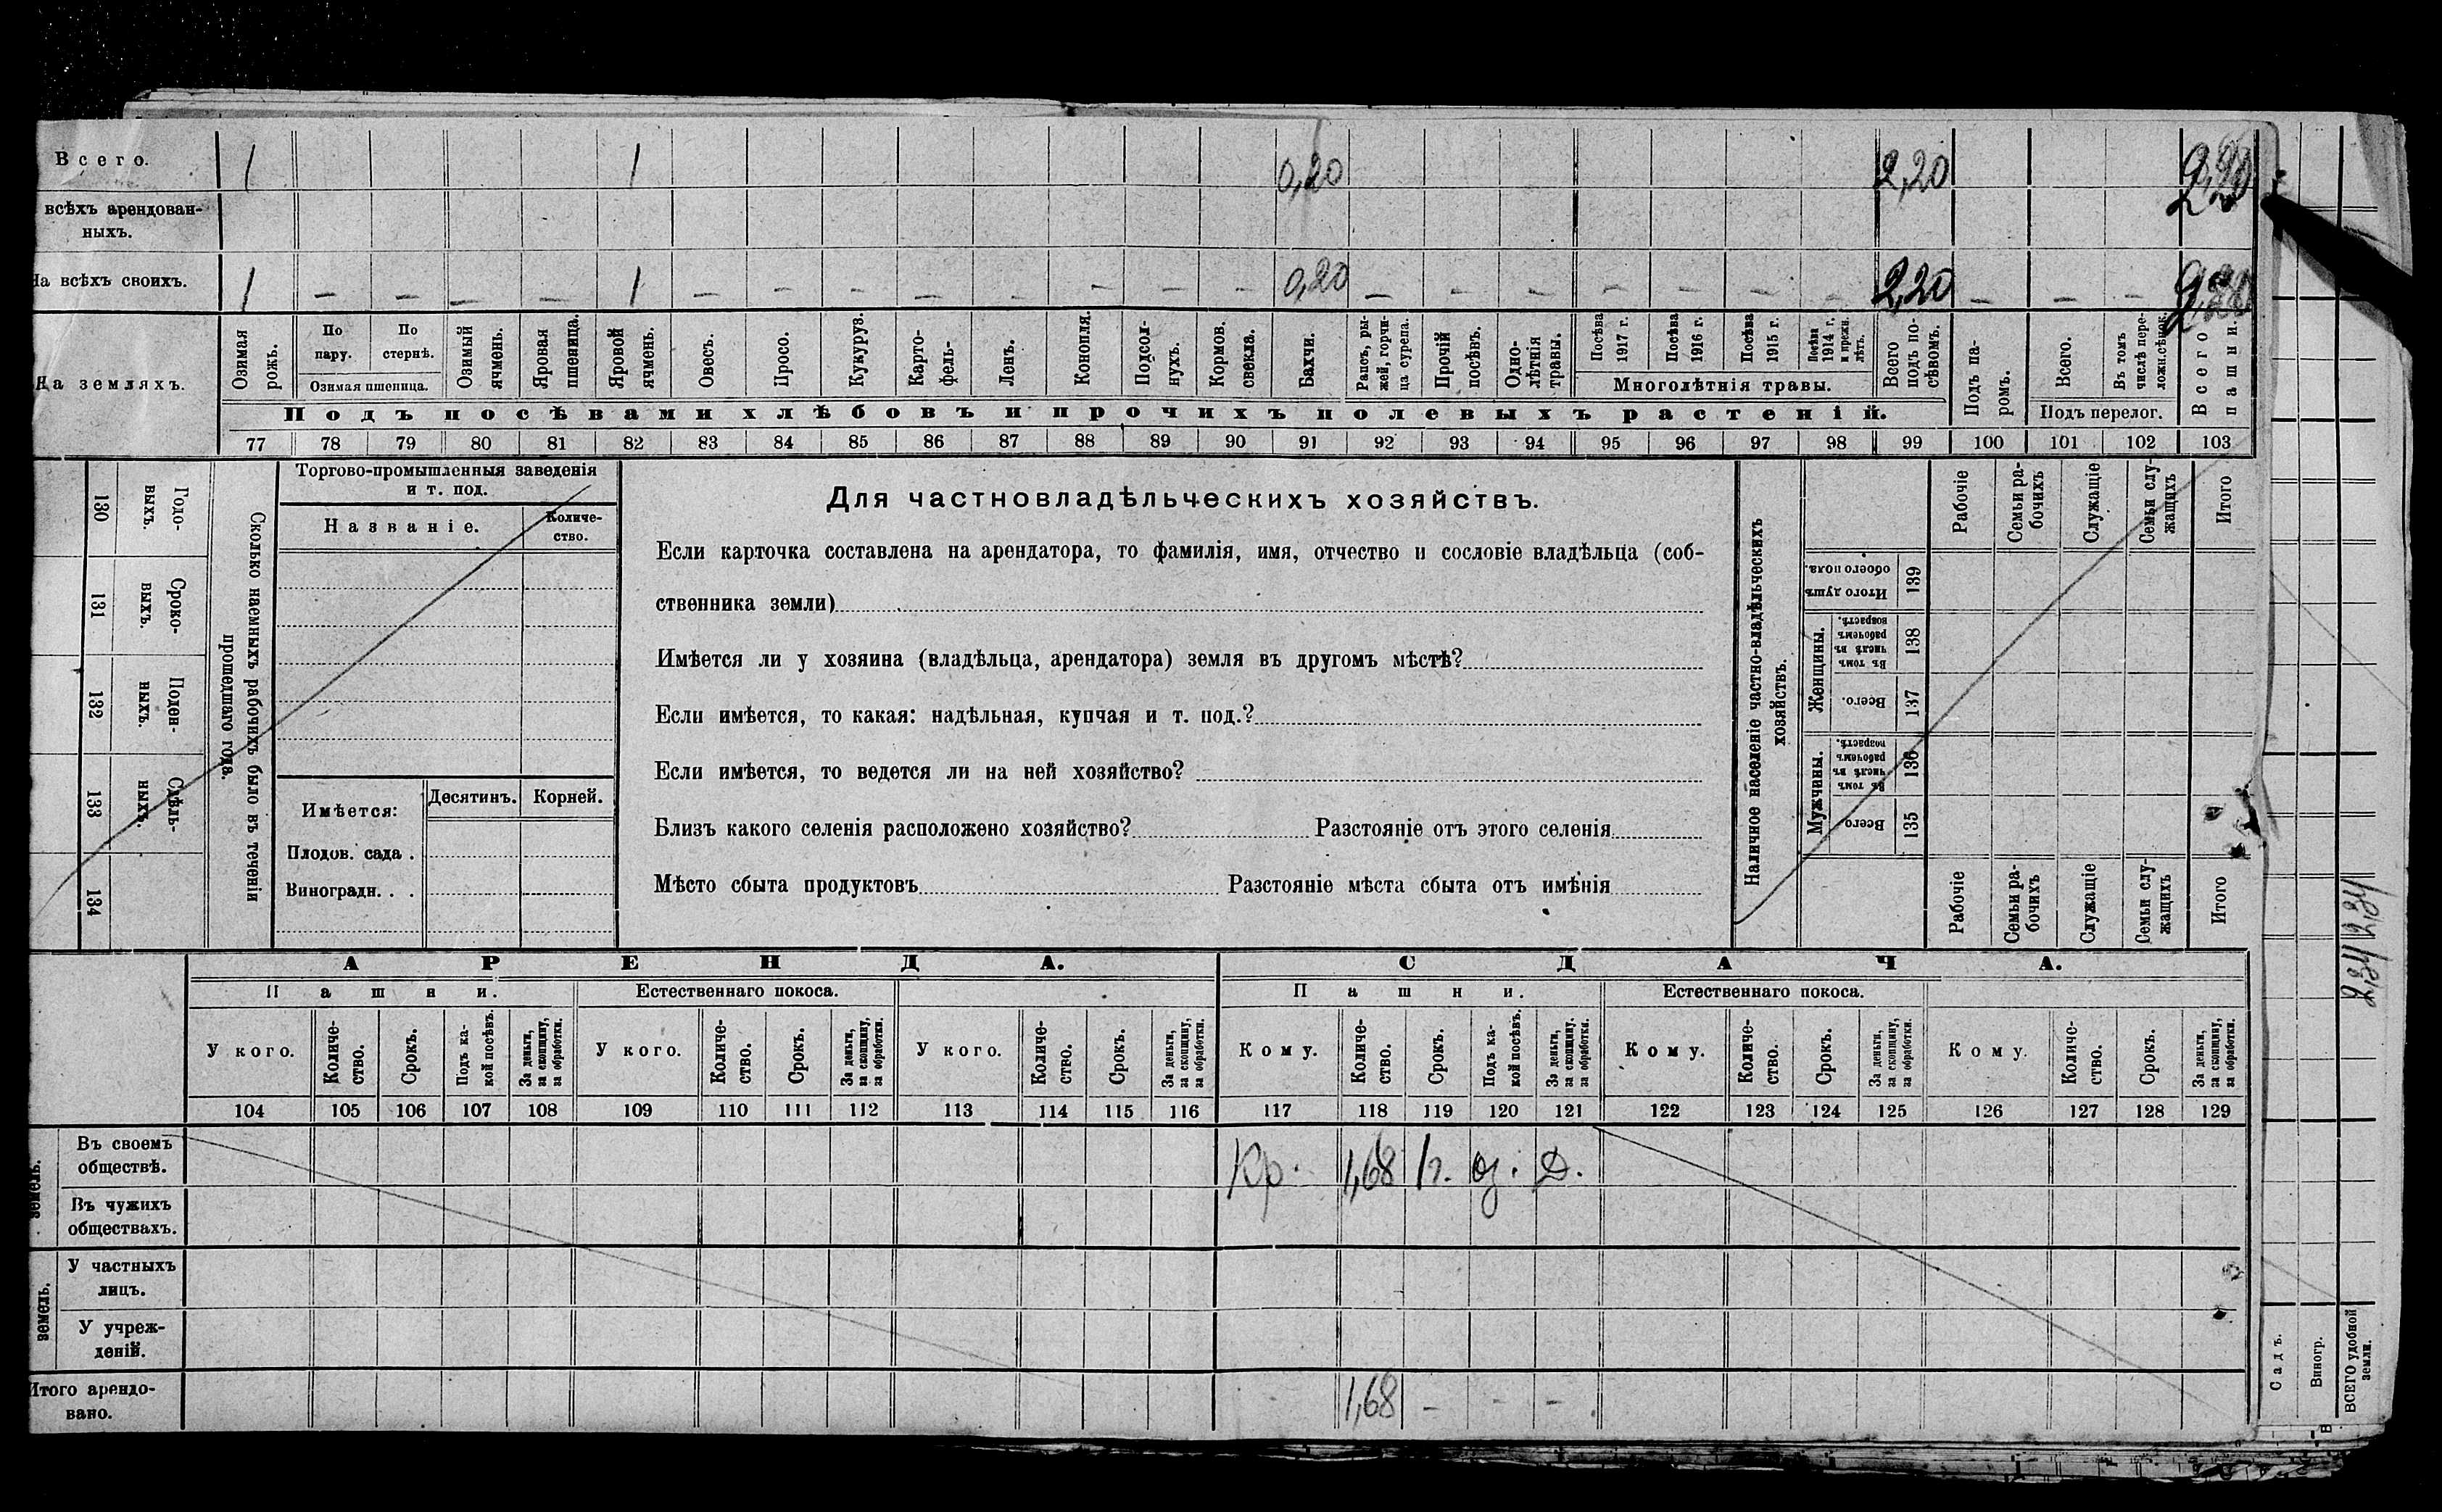 Всего. 1 1 0,20 2,20
всѣхъ арендован-
ныхъ.
На всѣхъ своихъ. 1 — — — — 1 — — — — — — — — 0,20 — — — — — — — 2,20 — — —
На земляхъ.
Озимая рожь.
По пару.
По стернѣ.
Озимая пшеница.
Озимый ячмень.
Яровая пшеница.
Яровой ячмень.
Овесъ.
Просо.
Кукуруз.
Карто-
фель-
Ленъ.
Конопля.
Подсол-
нухъ.
Кормов.
свекла.
Бахчи.
Рапсъ, ры-
жей, горчи-
ца сурепа.
Прочій
посѣвъ.
Одно-
лѣтнія
травы.
Посѣва
1917 г.
Посѣва
1916 г.
Посѣва
1915 г.
Посѣва
1914 г.
и прежн.
лѣтъ.
Многолѣтнія травы.
Всего
подъ по-
сѣвомъ.
Подъ па-
ромъ.
Всего.
Въ томъ
числѣ пере-
ложн.сѣнок.
Подъ перелог.
Всего
пашни.
Подъ посѣвами хлѣбовъ и прочихъ полевыхъ растеній.
77 78 79 80 81 82 83 84 85 86 87 88 89 90 91 92 93 94 95 96 97 98 99 100 101 102 103
130 Годо-
выхъ.
131 Сроко-
выхъ.
132 Поден-
ныхъ.
133 Сдѣль-
ныхъ.
134
Сколько наемныхъ рабочихъ было въ теченіи
прошедшаго года.
Торгово-промышленныя заведенія
и т. под.
Названіе.
Количе-
ство.
Имѣется:
Десятинъ. Корней.
Плодов. сада .
Виноградн. . .
Для частновладѣльческихъ хозяйствъ.
Если карточка составлена на арендатора, то фамилія, имя, отчество и сословіе владѣльца (соб-
ственника земли)
Имѣется ли у хозяина (владѣльца, арендатора) земля въ другомъ мѣстѣ?
Если имѣется, то какая: надѣльная, купчая и т. под.?
Если имѣется, то ведется ли на ней хозяйство?
Близъ какого селенія расположено хозяйство? Разстояніе отъ этого селенія
Мѣсто сбыта продуктовъ Разстояніе мѣста сбыта отъ имѣнія
Наличное населеніе частно-владѣльческихъ
хозяйствъ.
Рабочіе
Семьи ра-
бочихъ
Служащіе
Семьи слу-
жащихъ
Итого
Итого душъ
обоего пола. 139
Женщины.
Въ томъ
числѣ въ
рабочемъ
возрастѣ. 138
Всего. 137
Мужчины.
Въ томъ
числѣ въ
рабочемъ
возрастѣ. 136
Всего. 135
Рабочіе
Семьи ра-
бочихъ
Служащіе
Семьи слу-
жащихъ
Итого
АРЕНДА. СДАЧА.
Пашни. Естественнаго покоса. Пашни. Естественнаго покоса.
У кого.
Количе-
ство.
Срокъ.
Подъ ка-
кой посѣвъ.
За деньги,
за скопщину,
за обработки.
У кого.
Количе-
ство.
Срокъ.
За деньги,
за скопщину,
за обработки.
У кого.
Количе-
ство.
Срокъ.
За деньги,
за скопщину,
за обработки.
Кому.
Количе-
ство.
Срокъ.
Подъ ка-
кой посѣвъ.
За деньги,
за скопщину.
за обработки.
Кому.
Количе-
ство.
Срокъ.
За деньги,
за скопщину,
за обработки.
Кому.
Количе-
ство.
Срокъ.
За деньги,
за скопщину,
за обработки.
104 105 106 107 108 109 110 111 112 113 114 115 116 117 118 119 120 121 122 123 124 125 126 127 128 129
земель.
Въ своемъ
обществѣ. Кр. 1,68 1г. оз. Д.
Въ чужихъ
обществахъ.
земель.
У частныхъ
лицъ.
У учреж-
деній.
Итого арендо-
вано. 1,68 — — —
2,34 2,34
Садъ.
Виногр.
ВСЕГО удобной
земли.